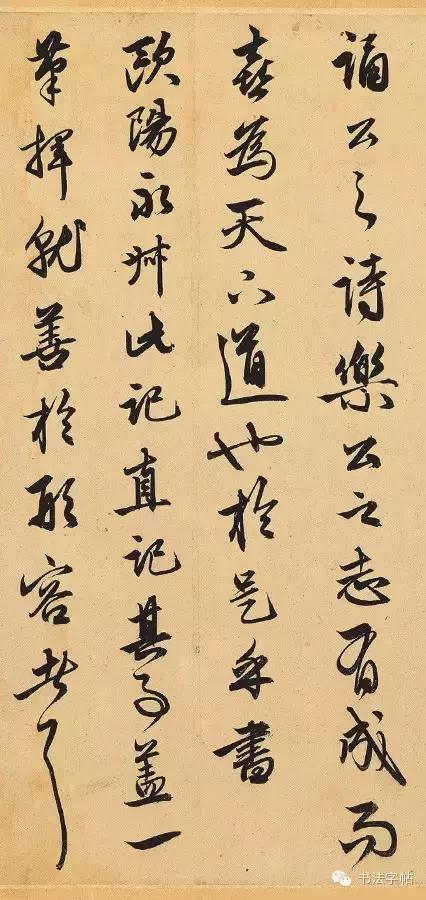 誦公之詩樂公之志有成而
喜為天下道也於是乎書
歐陽永叔此記直記其事盖一
筆揮就善於形容者耶
书法字帖